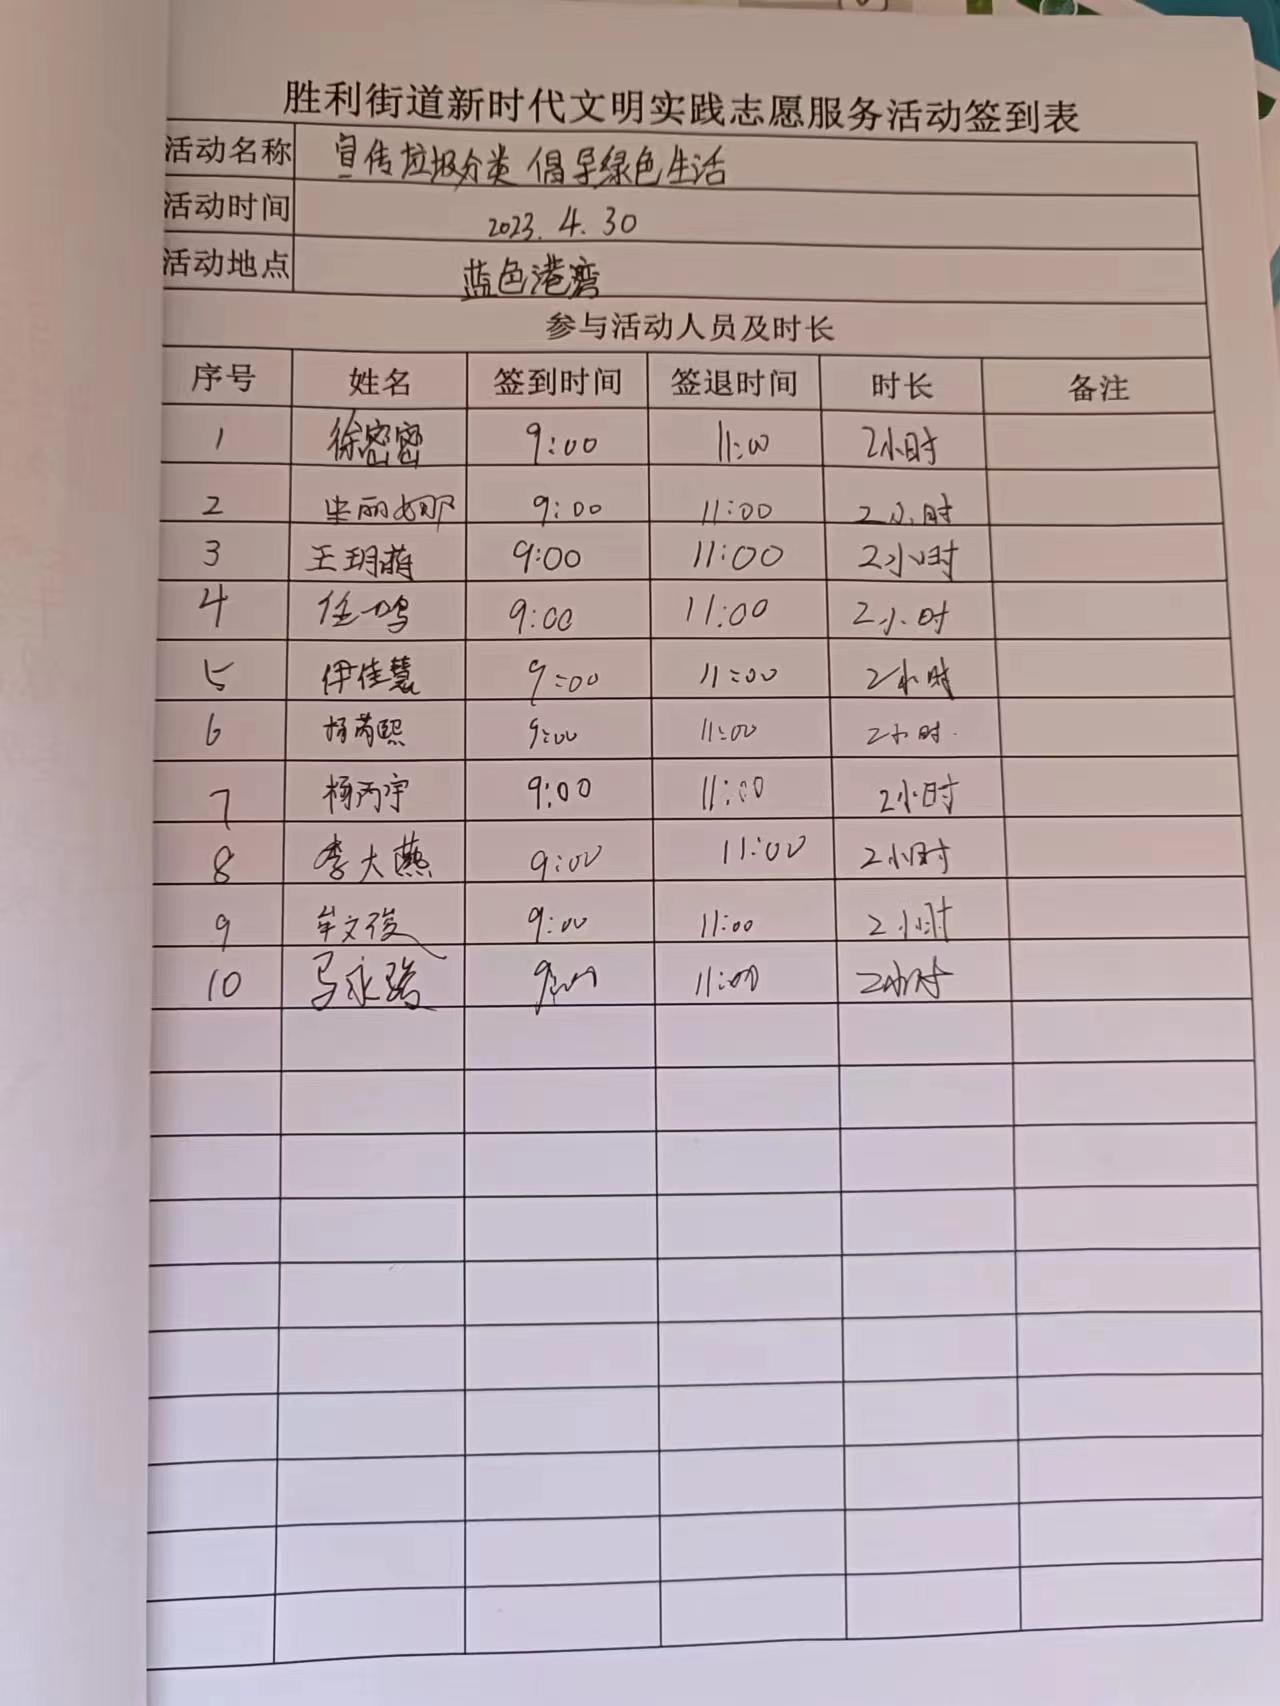 胜利街道新时代文明实践志愿服务活动签到表
活动名称 宣传垃圾分类 倡导绿色生活
活动时间 2023.4.30
活动地点 蓝色港湾
参与活动人员及时长
序号 姓名 签到时间 签退时间 时长 备注
1 徐密密 9:00 11:00 2小时
2 丽娜 9:00 11:00 2小时
3 王玥蒴 9:00 11:00 2小时
4 任一鸣 9:00 11:00 2小时
5 伊佳慧 9:00 11:00 2小时
6 杨芮熙 9:00 11:00 2小时
7 杨丙宇 9:00 11:00 2小时
8 李大燕 9:00 11:00 2小时
9 牟文俊 9:00 11:00 2小时
10 马永 9:00 11:00 2小时